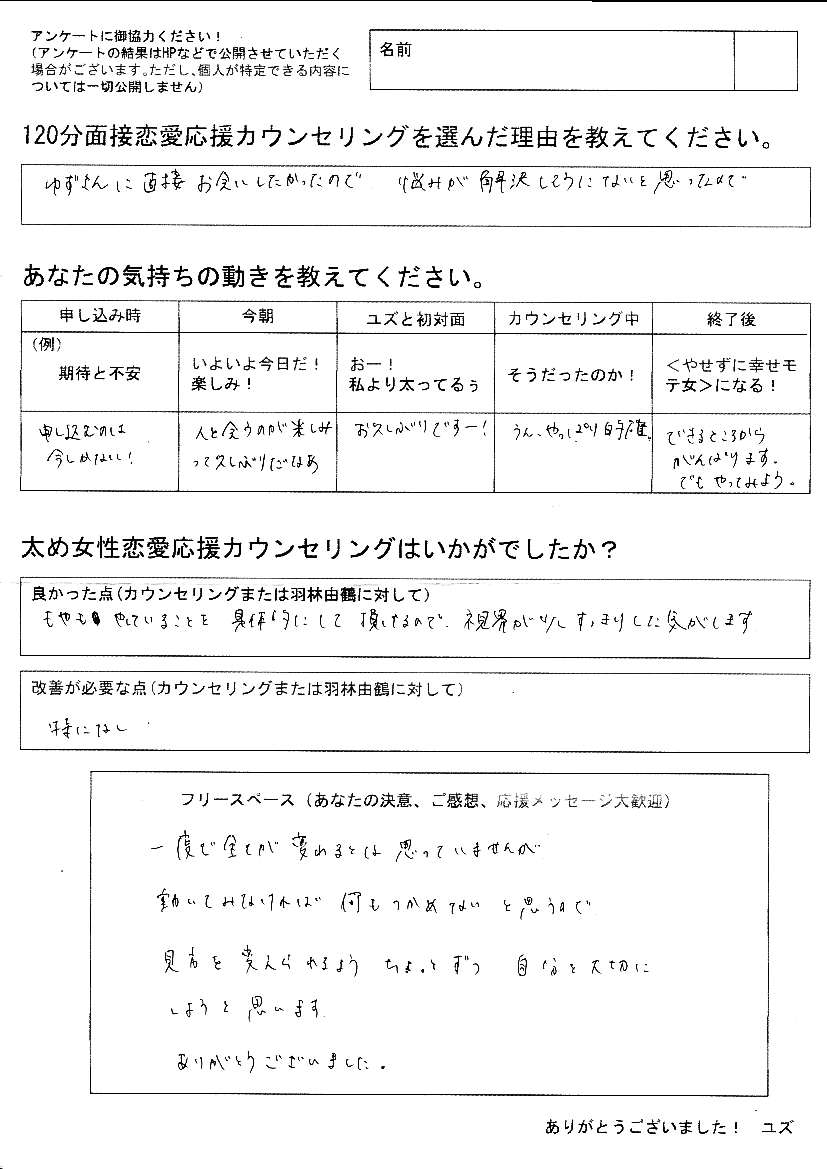 アンケートに御協力ください!
(アンケートの結果はHPなどで公開させていただく
場合がございます。ただし、個人が特定できる内容に
ついては一切公開しません)
名前
120分面接恋愛応援カウンセリングを選んだ理由を教えてください。
ゆずさんに直接お会いしたかったので 悩みが解決しそうにないと思ったので
あなたの気持ちの動きを教えてください。
申し込み時 今朝 ユズと初対面 カウンセリング中 終了後
(例)
期待と不安
いよいよ今日だ!
楽しみ!
おー!
私より太ってるぅ
そうだったのか!
<やせずに幸せモ
テ女>になる!
申し込むのは
今しかない!
人と会うのが楽しみ
って久しぶりだなあ
お久しぶりですー!
うん、やっぱり
できるところから
がんばります。
でもやってみよう。
太め女性恋愛応援カウンセリングはいかがでしたか?
良かった点(カウンセリングまたは羽林由鶴に対して)
もやもやしていることを 具体的にして頂けるので、視界が少しすっきりした気がします
改善が必要な点(カウンセリングまたは羽林由鶴に対して)
特になし
フリースペース(あなたの決意、ご感想、応援メッセージ大歓迎)
一度で全てが変わるとは思っていませんが
動いてみなければ 何もつかめない と思うので
見方を変えられるよう ちょっとずつ 自分を大切に
しようと思います。
ありがとうございました。
ありがとうございました! ユズ